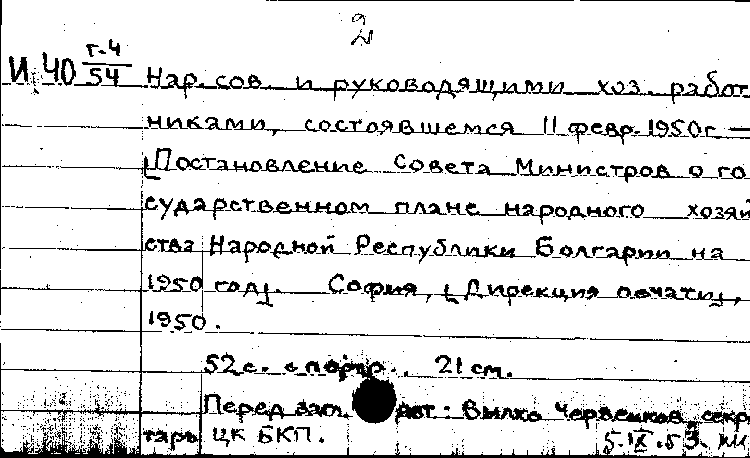 2
И 40 г.4/54 Нар. сов. и руководящими хоз. работ
никами, состоявшемся 11 февр. 1950г. —
[Постановление Совета Министров о го
сударственном плане народного хозяй
ства Народной Республики Болгарии на
1950 год]. София, [Дирекция печати],
1950.
52с. с портр. 21 см.
Перед заг. авт.: Вылко Червенков, секр
тарь ЦК БКП.
5.IX.53.